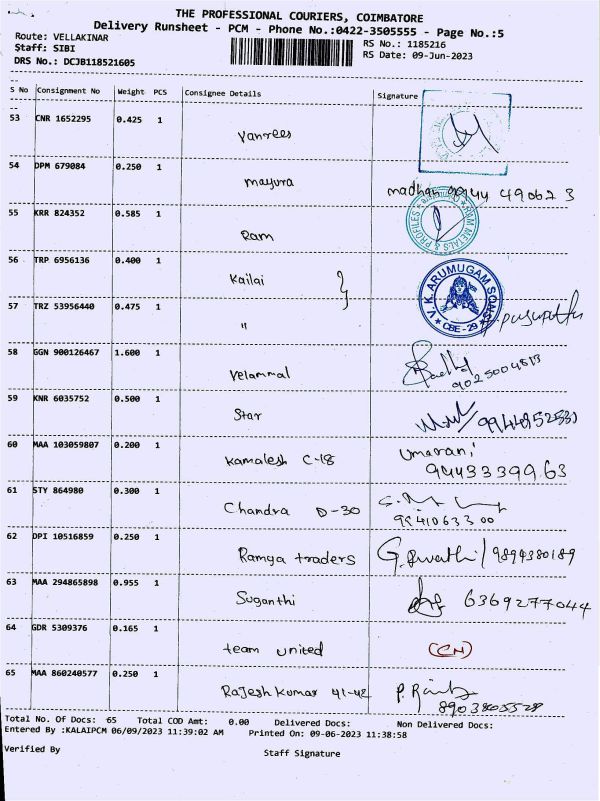 THE PROFESSIONAL COURIERS, COIMBATORE
Delivery Runsheet - PCM - Phone No.:0422-3505555 - Page No.:5
Route: VELLAKINAR RS No.: 1185216
Staff: SIBI RS Date: 09-Jun-2023
DRS No.: DCJB118521605
S No Consignment No Weight PCS Consignee Details Signature
53 CNR 1652295 0.425 1
Vanrees
54 DPM 679084 0.250 1
mayura madhan 99444 49062 3
55 KRR 824352 0.585 1
Ram RAM METALS & PROFILES
56 TRP 6956136 0.400 1
Kailai V.K. ARUMUGAM SONS
57 TRZ 53956440 0.475 1 CBE-29
"
58 GGN 900126467 1.600 1
Velammal 9025004813
59 KNR 6035752 0.500 1
Star
60 MAA 103059807 0.200 1
Kamalesh C-18 Umarani
9443339963
61 STY 864980 0.300 1
Chandra D-30
9941063300
62 DPI 10516859 0.250 1
Ramya traders 9894380189
63 MAA 294865898 0.955 1
Suganthi 6369277044
64 GDR 5309376 0.165 1
team united (CN)
65 MAA 860240577 0.250 1
Rajesh Kumar 41-42
8903805528
Total No. Of Docs: 65 Total COD Amt: 0.00 Delivered Docs: Non Delivered Docs:
Entered By :KALAIPCM 06/09/2023 11:39:02 AM Printed On: 09-06-2023 11:38:58
Verified By Staff Signature